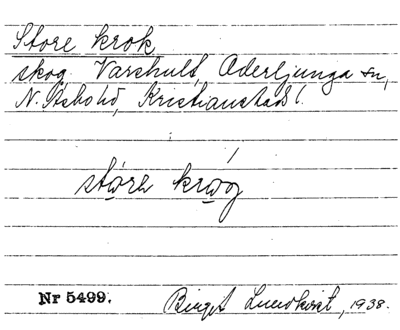 Store krok
skog. Varshult, Oderljunga sn,
N. Åsbohd, Kristianstads l.
støre krøg
Nr 5499.
Birgit Lundkvist, 1938.